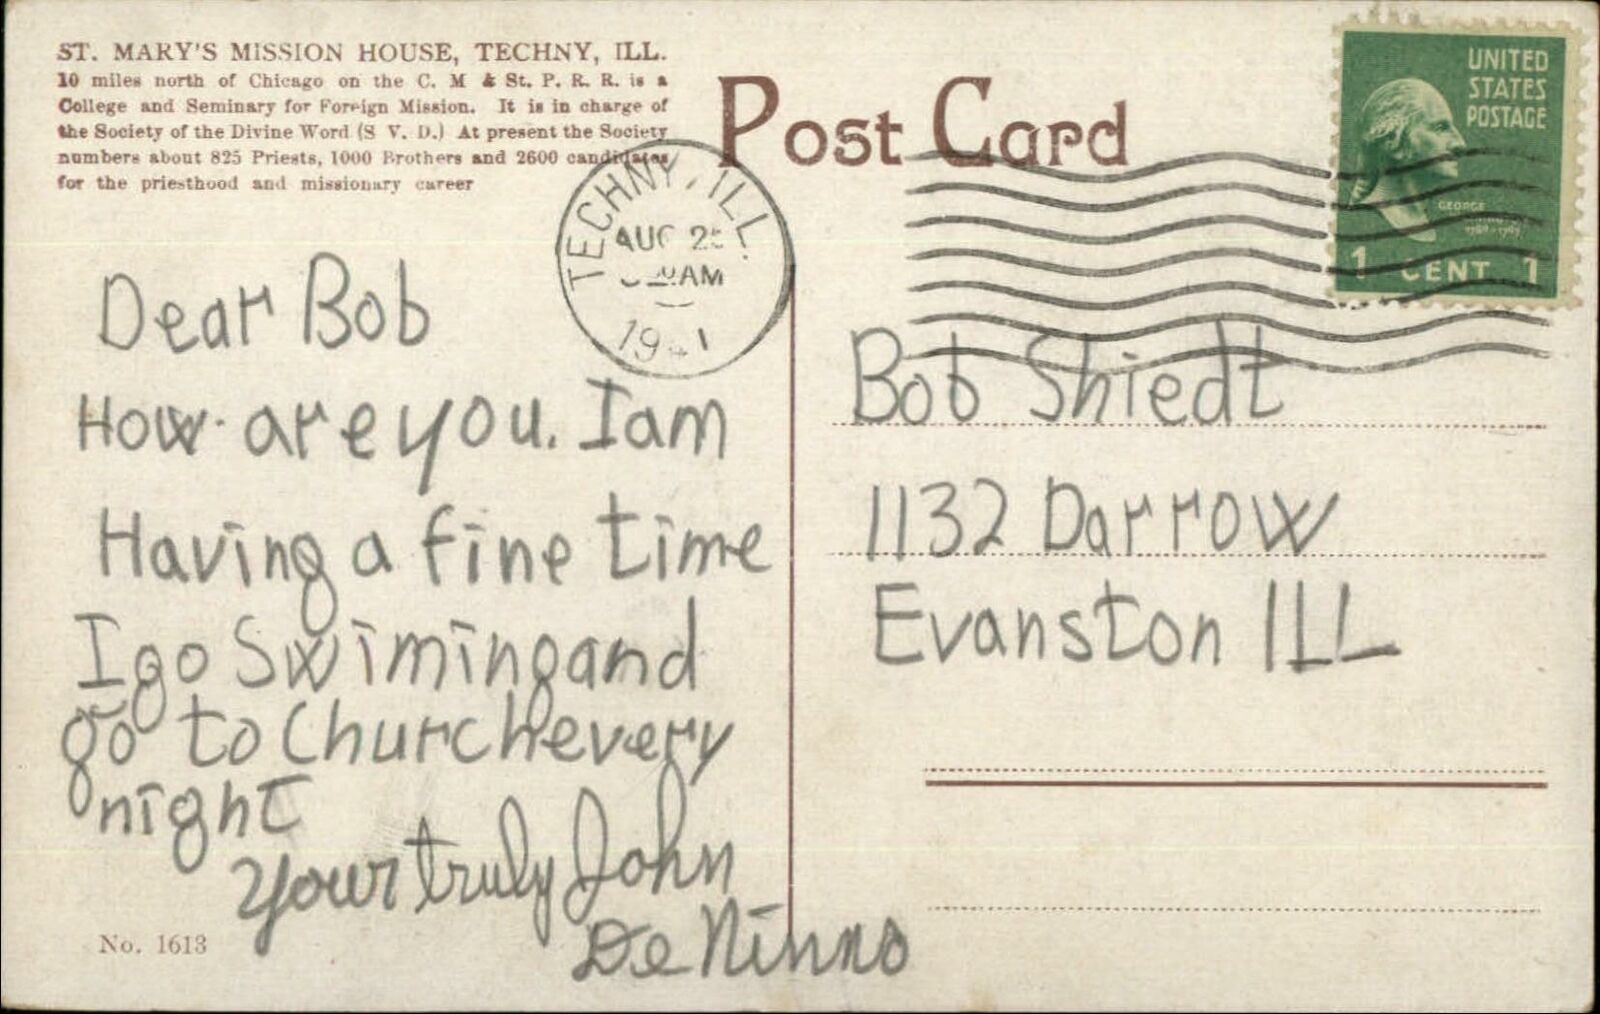 ST. MARY'S MISSION HOUSE, TECHNY, ILL.
10 miles north of Chicago on the C. M & St. P. R. R. is a
College and Seminary for Foreign Mission. It is in charge of
the Society of the Divine Word (S V. D.) At present the Society
numbers about 825 Priests, 1000 Brothers and 2600 candidates
for the priesthood and missionary career
Post Card
UNITED
STATES
POSTAGE
GEORGE
1 CENT 1
TECHNY, ILL.
AUG
AM
Dear Bob
How are you. I am
Having a fine time
I go Swiming and
go to Church every
night
Your truly John
De Ninno
Bob Shiedt
1132 Darrow
Evanston ILL
No. 1613